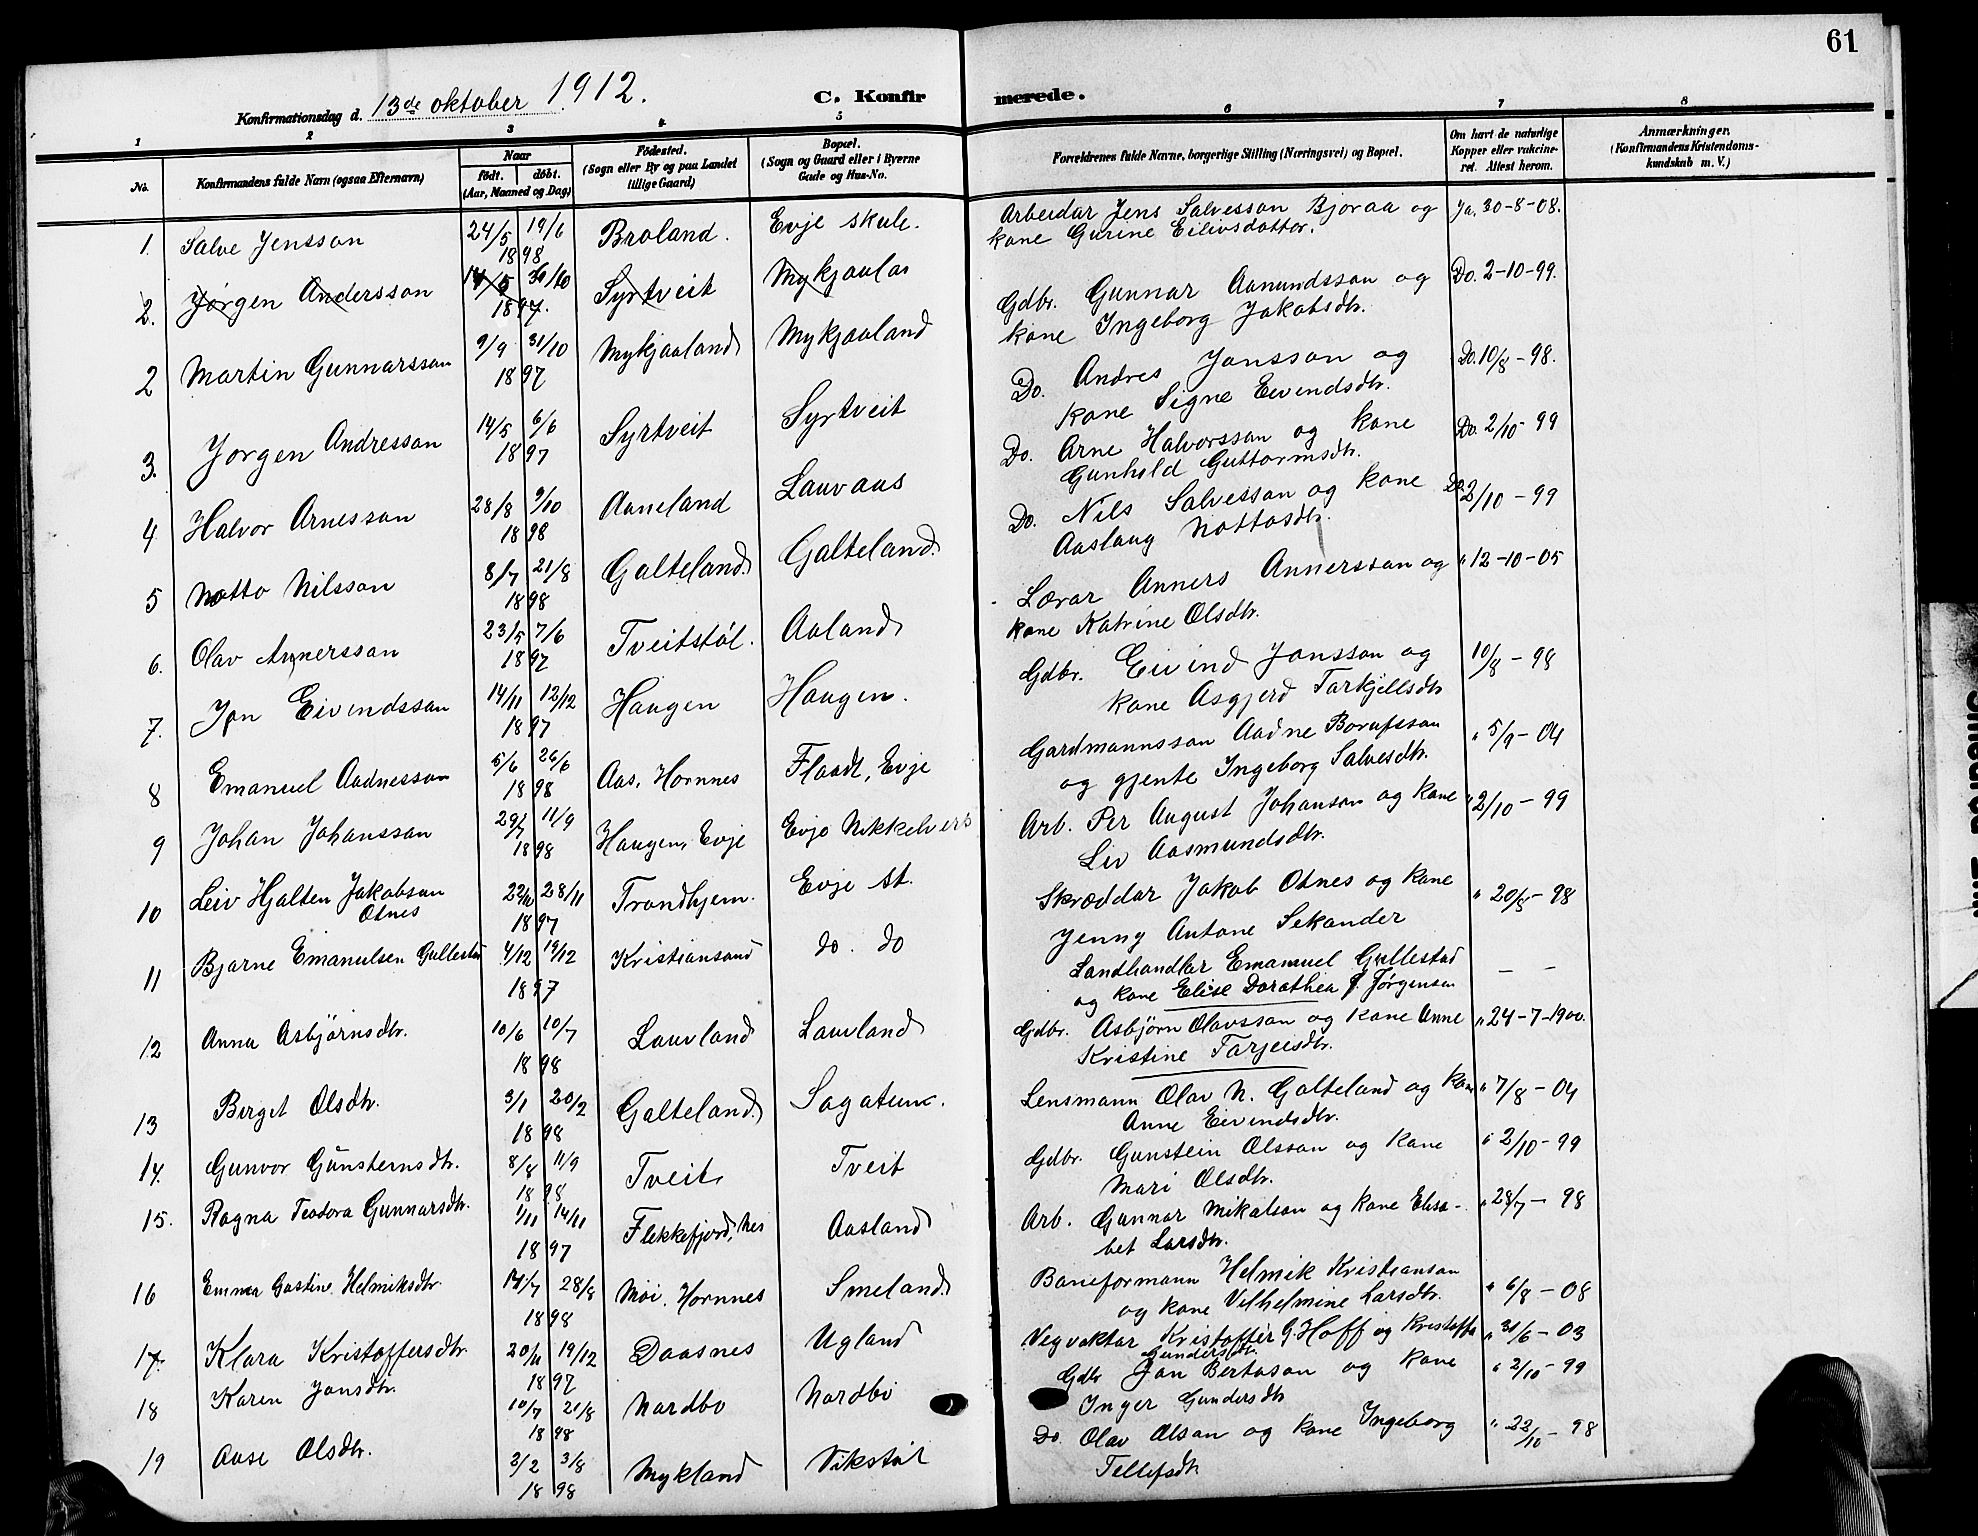 61
Konfirmationsdag d. 13de oktober 1912.
C. Konfirmerede.
1 2 3 4 5 6 7 8
No. Konfirmandens fulde Navn (ogsaa Efternavn) Naar födt. döbt. (Aar, Maaned og Dag) Födested. (Sogn eller By og paa Landet tillige Gaard) Bopæl. (Sogn og Gaard eller i Byerne Gade og Hus-No. Forældrenes fulde Navne, borgerlige Stilling (Næringsvei) og Bopæl. Om havt de naturlige Kopper eller vakcineret. Attest herom. Anmærkninger. (Konfirmandens Kristendomskundskab m. V.)
1. Salve Jensson 24/5 19/6 1898 Broland. Evje skule. Arbeidar Jens Salvesson Bjoraa og kone Gurine Eilivsdotter. Ja. 30-8-08.
2. Jørgen Andersson 14/5 1897. Syrtveit Mykjaalas
2 Martin Gunnarsson 9/9 31/10 1897 Mykjaaland Mykjaaland Gdbr. Gunnar Aanundsson og kone Ingeborg Jakobsdtr. Do. 2-10-99.
3. Jorgen Andresson 14/5 6/6 1897 Syrtveit Syrtveit Do. Andres Jonsson og kone Signe Eivendsdtr. Do. 10/8-98.
4 Halvor Arnesson 28/8 9/10 1898 Aaneland Lauvaas Do. Arne Halvorsson og kone Gunhild Guttormsdtr. Do. 2/10-99
5 Notto Nilsson 8/7 21/8 1898 Galteland Galteland. Do. Nils Salvesson og kone Aaslaug Nottosdtr. Do. 2/10-99
6. Olav Annersson 23/5 7/6 1897 Tveitstøl. Aaland Lærar Anners Annersson og kone Katrine Olsdtr. " 12-10-05
7. Jon Eivendsson 14/11 12/12 1897 Haugen Haugen. Gdbr. Eivind Jonsson og kone Asgjerd Tarkjellsdtr 10/8-98
8 Emanuel Aadnesson 5/6 26/6 1898 Aas, Hornnes Flaadt, Evje Gardmannsson Aadne Borufsson og gjente Ingeborg Salvesdtr. " 5/9-04
9 Johan Johansson 29/7 11/9 1898 Haugen, Evje Evje Nikkelverk Arb. Per August Johanson og kone Liv Aasmundsdtr. " 2/10-99
10 Leiv Hjalten Jakobson Otnes 22/10 28/11 1897 Trondhjem. Evje st. Skræddar Jakob Otnes og kone Jenny Antone Sekander " 20/8-98
11 Bjarne Emanuelsen Gullestad 4/12 19/12 1897 Kristiansand do. do Landhandlar Emanuel Gullestad og kone Elise Dorothea f. Jørgensen — —
12 Anna Asbjørnsdtr. 10/6 10/7 1898 Lauvland Lauvland Gdbr. Asbjørn Olavsson og kone Anne Kristine Tarjeisdtr. " 24-7-1900.
13 Berget Olsdtr. 3/1 20/2 1898 Galteland Sagatun. Lensmann Olav N. Galteland og kone Anne Eivendsdtr. " 7/8-04
14. Gunvor Gunsteinsdtr. 8/8 11/9 1898 Tveit Tveit Gdbr. Gunstein Olsson og kone Mari Olsdtr. " 2/10-99
15. Ragna Teodora Gunnarsdtr. 1/11 14/11 1897 Flekkefjord, Nes Aasland Arb. Gunnar Mikalson og kone Elisabet Larsdtr. " 28/7-98
16 Emma Gostine Helmiksdtr. 17/7 28/8 1898 Moi, Hornnes Smeland Baneformann Helmik Kristianson og kone Vilhelmine Larsdtr. " 6/8-08
17. Klara Kristoffersdtr 20/11 19/12 1897 Daasnes Ugland Vegvaktar Kristoffer G. Hoff og Kristoffa Gundersdtr. " 31/6-03
18 Karen Jonsdtr. 10/7 21/8 1898 Nordbo Nordbø Gdbr Jon Bertsson og kone Inger Gundersdtr " 2/10-99
19 Aase Olsdtr. 3/2 3/8 1898 Mykland Vikstøl Do Olav Olsson og kone Ingeborg Tellefsdtr " 22/10-98